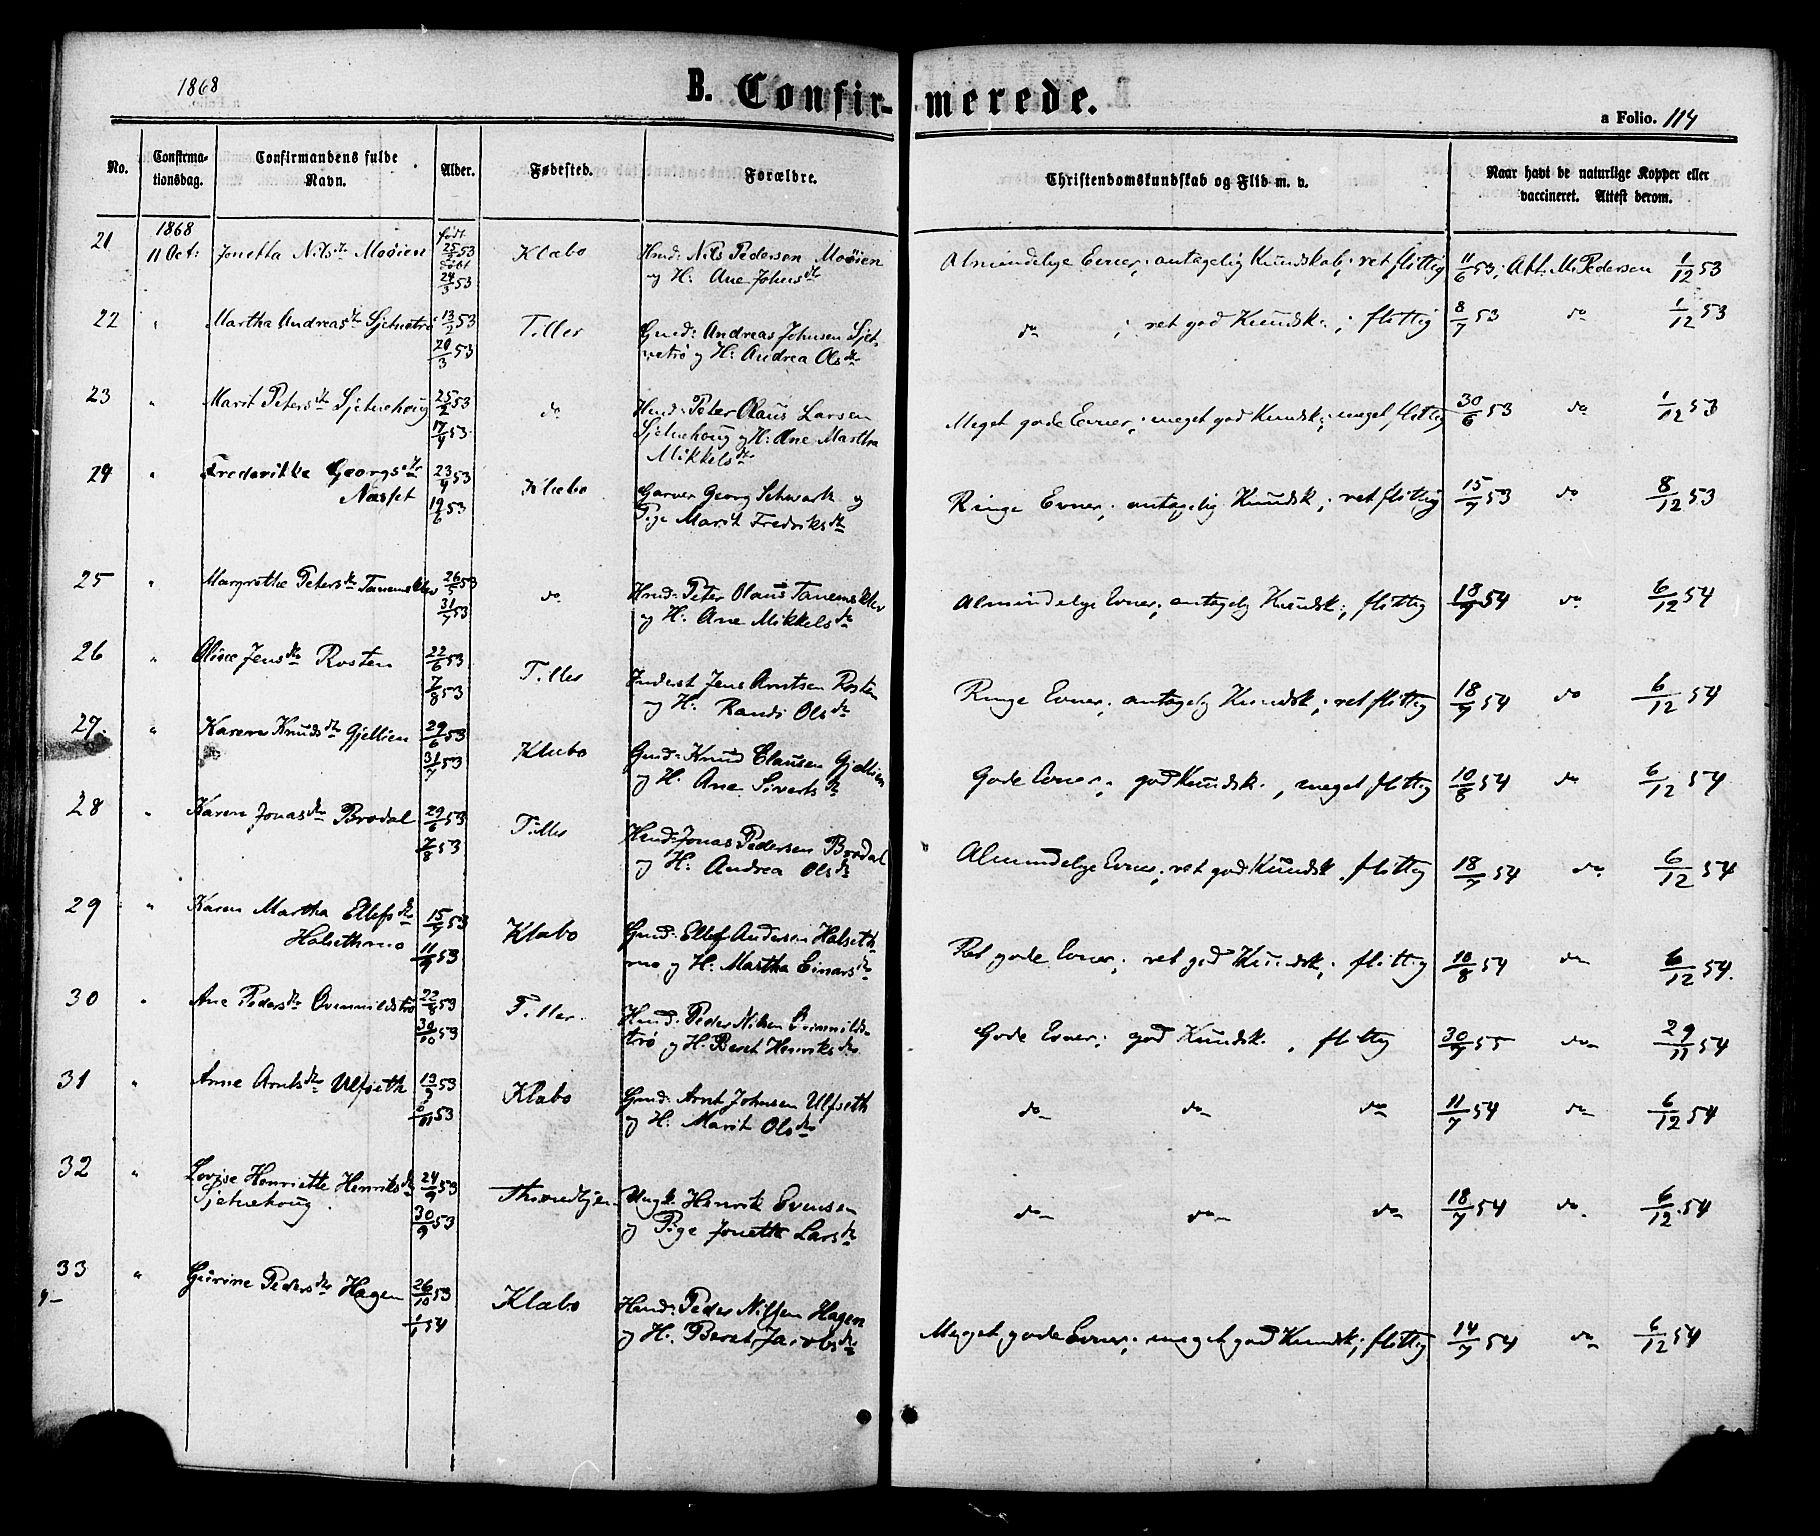 1868
B. Confirmerede.
a Folio. 114
No.
Confirmationsdag.
Confirmandens fulde Navn.
Alder.
Fødested.
Forældre.
Christendomskundskab og Flid m. v.
Naar havt de naturlige Kopper eller vaccineret. Attest derom.
1868
21 11 Oct: Jonetta Nilsdr Moøien født 25/2 53 døbt 24/3 53 Klæbo Hmd: Nils Pedersen Moøien og H. Ane Johnsdr Almindelige Evner; antagelig Kundskab; ret flittig 11/6 53; Att. M. Pedersen 1/12 53
22 " Martha Andreasdr Sjetnetrø 13/2 53 20/3 53 Tiller Gmd: Andreas Johnsen Sjetnetrø og H: Andrea Olsdr do ; ret god Kundsk.; flittig 8/7 53 do 1/12 53
23 " Marit Petersdr Sjetnehoug 25/2 53 17/4 53 do Hmd: Peter Olaus Larsen Sjetnehoug og H: Ane Martha Mikkelsdr Meget gode Evner; meget god Kundsk.; meget flittig 30/6 53 do 1/12 53
24 " Frederikke Georgsdr Næsset 23/4 53 19/6 53 Klæbo Garver Georg Schwark og Pige Marit Fredriksdr Ringe Evner; antagelig Kundsk.; ret flittig 15/7 53 do 8/12 53
25 " Margrethe Petersdr Tanemsklev 26/5 53 31/7 53 do Hmd: Peter Olaus Tanemsklev og H. Ane Mikkelsdr Almindelige Evner; antagelig Kundsk.; flittig 18/7 54 do 6/12 54
26 " Oline Jensdr Rosten 22/6 53 7/8 53 Tiller Inderst Jens Arntsen Rosten og H: Randi Olsdr Ringe Evner; antagelig Kundsk.; ret flittig 18/7 54 do 6/12 54
27. " Karen Knudsdr Gjellien 29/6 53 31/7 53 Klæbo Gmd: Knud Clausen Gjellien og H. Ane Sivertsdr Gode Evner; god Kundsk., meget flittig 10/8 54 do 6/12 54
28 " Karen Jonasdr Brødal 29/6 53 7/8 53 Tiller Hmd: Jonas Pedersen Brødal og H: Andrea Olsdr Almindelige Evner; ret god Kundsk. flittig 18/7 54 do 6/12 54
29 " Karen Martha Ellefsdr Halsethmo 15/7 53 11/9 53 Klæbo Gmd: Ellef Andersen Halsethmo og H: Martha Einarsdr Ret gode Evner; ret god Kundsk.; flittig 10/8 54 do 6/12 54.
30 " Ane Pedersdr Qvennildstrø 22/8 53 30/10 53 Tiller Hmd: Peder Nilsen Qvennildstrø og H. Beret Henriksdr Gode Evner; god Kundsk., flittig 30/9 55 do 29/11 54
31 " Anne Arntsdr Ulfseth 13/9 53 /11 53 Klæbo Gmd: Arnt Johnsen Ulfseth og H. Marit Olsdr do do do 11/7 54 do 6/12 54
32 " Lovise Henriette Henriksdr Sjetnehoug. 24/9 53 30/9 53 Throndhjem Ungk. Henrik Evensen og Pige Jonetta Larsdr do do do 18/7 54 do 6/12 54
33 " Gurine Pedersdr Hagen 26/10 53 1/1 54 Klæbo Hmd: Peder Nilsen Hagen og H. Beret Jacobsdr Meget gode Evner; meget god Kundsk.; flittig 14/7 54 do 6/12 54